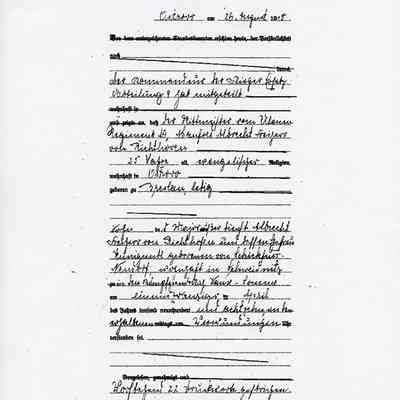 Ostrowo am 26. August 1918
Vor dem unterzeichneten Standesbeamten erschien heute, der Persönlichkeit
nach
kannt,
der Kommandeur der Flieger Ersatz
Abteilung 9 hat mitgeteilt
wohnhaft in
und zeigte an, daß der Rittmeister vom Ulanen
Regiment Manfred Albrecht Freiherr
von Richthofen
25 Jahre alt, evangelischer Religion,
wohnhaft in Ostrowo
geboren zu Breslau, ledig
Sohn des Majors Albrecht
Freiherr von Richthofen und dessen Ehefrau
Kunigunde geborenen von Schickfus-
Neudorf, wohnhaft in Schweidnitz
zu an der Somme
am einundzwanzigsten April
des Jahres tausend neunhundert und achtzehn
Verwundungen Uhr
verstorben sei.
Vorgelesen, genehmigt und
Vorstehend 22 Druckworte gestrichen.